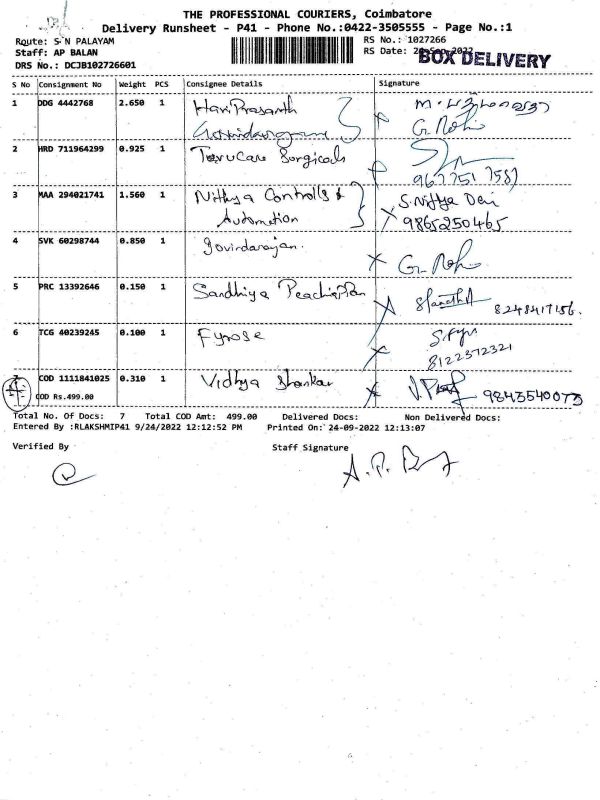 THE PROFESSIONAL COURIERS, Coimbatore
Delivery Runsheet - P41 - Phone No.:0422-3505555 - Page No.:1
Route: S N PALAYAM RS No.: 1027266
Staff: AP BALAN RS Date: 24-Sep-2022
BOX DELIVERY
DRS No.: DCJB102726601
S No Consignment No Weight PCS Consignee Details Signature
1 DDG 4442768 2.650 1 Hari Prasanth
Govindarajan G. Rohi
2 HRD 711964299 0.925 1 Surgicals
96775 17581
3 MAA 294021741 1.560 1 Nithya Controlls & S. Nithya Devi
Automation 9865250465
4 SVK 60298744 0.850 1 govindarajan. G. Rohi
5 PRC 13392646 0.150 1 Sandhiya 8248417156.
6 TCG 40239245 0.100 1 Fyrose
8122372321
7 COD 1111841025 0.310 1 Vidhya Shankar 9843540073
COD Rs.499.00
Total No. Of Docs: 7 Total COD Amt: 499.00 Delivered Docs: Non Delivered Docs:
Entered By :RLAKSHMIP41 9/24/2022 12:12:52 PM Printed On: 24-09-2022 12:13:07
Verified By Staff Signature